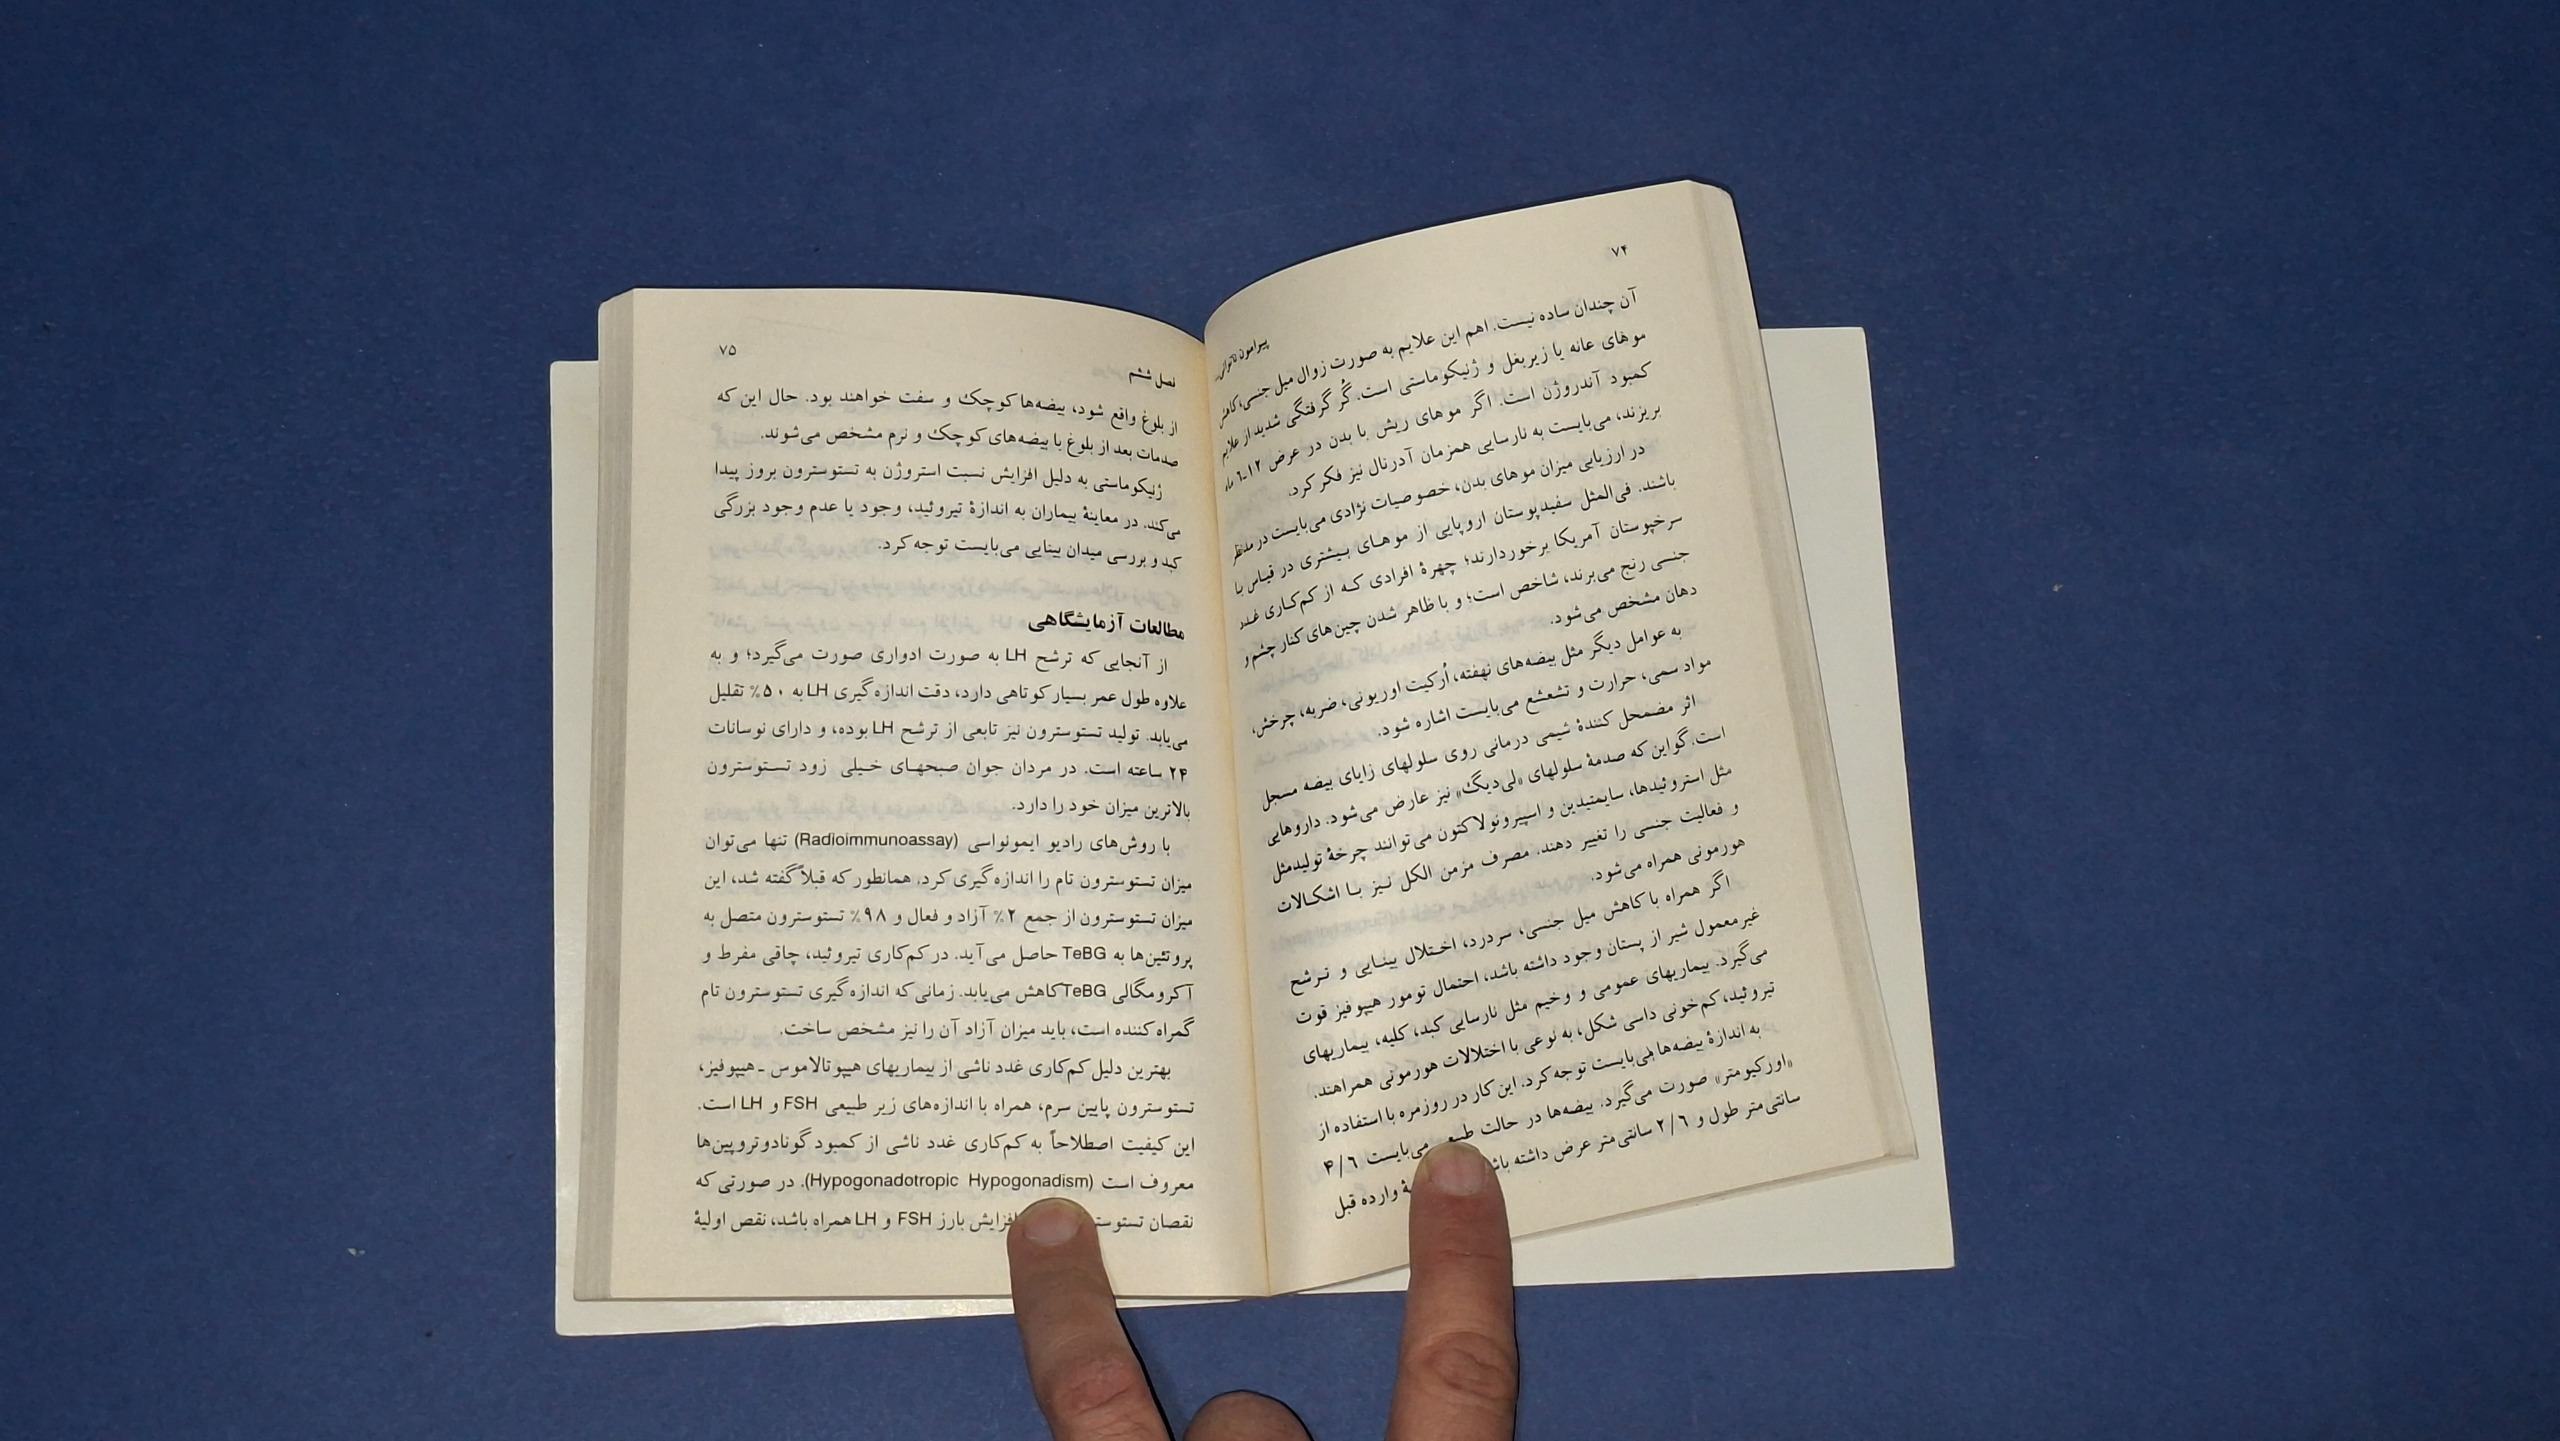 ۷۴
پیرامون ناتوانی...
آن چندان ساده نیست. اهم این علایم به صورت زوال میل جنسی، کاهش
موهای عانه یا زیربغل و ژنیکوماستی است. گُر گرفتگی شدید از علایم
کمبود آندروژن است. اگر موهای ریش با بدن در عرض ۱۲-۶ ماه
بریزند، می‌بایست به نارسایی همزمان آدرنال نیز فکر کرد.
در ارزیابی میزان موهای بدن، خصوصیات نژادی می‌بایست در مدنظر
باشند. فی‌المثل سفیدپوستان اروپایی از موهای بیشتری در قیاس با
سرخپوستان آمریکا برخوردارند؛ چهرهٔ افرادی که از کم‌کاری غدد
جنسی رنج می‌برند، شاخص است؛ و با ظاهر شدن چین‌های کنار چشم و
دهان مشخص می‌شود.
به عوامل دیگر مثل بیضه‌های نهفته، اُرکیت اوریونی، ضربه، چرخش،
مواد سمی، حرارت و تشعشع می‌بایست اشاره شود.
اثر مضمحل کنندهٔ شیمی درمانی روی سلولهای زایای بیضه مسجل
است. گواین که صدمهٔ سلولهای «لی‌دیگ» نیز عارض می‌شود. داروهایی
مثل استروئیدها، سایمتیدین و اسپیرونولاکتون می‌توانند چرخهٔ تولیدمثل
و فعالیت جنسی را تغییر دهند. مصرف مزمن الکل نیز با اشکالات
هورمونی همراه می‌شود.
اگر همراه با کاهش میل جنسی، سردرد، اختلال بینایی و ترشح
غیرمعمول شیر از پستان وجود داشته باشد، احتمال تومور هیپوفیز قوت
می‌گیرد. بیماریهای عمومی و وخیم مثل نارسایی کبد، کلیه، بیماریهای
تیروئید، کم‌خونی داسی شکل، به نوعی با اختلالات هورمونی همراهند.
به اندازهٔ بیضه‌ها می‌بایست توجه کرد. این کار در روزمره با استفاده از
«اورکیومتر» صورت می‌گیرد. بیضه‌ها در حالت طبیعی می‌بایست ۴/۶
سانتی‌متر طول و ۲/۶ سانتی‌متر عرض داشته وارده قبل
۷۵
فصل ششم
از بلوغ واقع شود، بیضه‌ها کوچک و سفت خواهند بود. حال این که
صدمات بعد از بلوغ با بیضه‌های کوچک و نرم مشخص می‌شوند.
ژنیکوماستی به دلیل افزایش نسبت استروژن به تستوسترون بروز پیدا
می‌کند. در معاینهٔ بیماران به اندازهٔ تیروئید، وجود یا عدم وجود بزرگی
کبد و بررسی میدان بینایی می‌بایست توجه کرد.
مطالعات آزمایشگاهی
از آنجایی که ترشح LH به صورت ادواری صورت می‌گیرد؛ و به
علاوه طول عمر بسیار کوتاهی دارد، دقت اندازه‌گیری LH به ۵۰٪ تقلیل
می‌یابد. تولید تستوسترون نیز تابعی از ترشح LH بوده، و دارای نوسانات
۲۴ ساعته است. در مردان جوان صبحهای خیلی زود تستوسترون
بالاترین میزان خود را دارد.
با روش‌های رادیو ایمونواسی (Radioimmunoassay) تنها می‌توان
میزان تستوسترون تام را اندازه‌گیری کرد. همانطور که قبلاً گفته شد، این
میزان تستوسترون از جمع ۲٪ آزاد و فعال و ۹۸٪ تستوسترون متصل به
پروتئین‌ها به TeBG حاصل می‌آید. در کم‌کاری تیروئید، چاقی مفرط و
آکرومگالی TeBG کاهش می‌یابد. زمانی که اندازه‌گیری تستوسترون تام
گمراه کننده است، باید میزان آزاد آن را نیز مشخص ساخت.
بهترین دلیل کم‌کاری غدد ناشی از بیماریهای هیپوتالاموس ـ هیپوفیز،
تستوسترون پایین سرم، همراه با اندازه‌های زیر طبیعی FSH و LH است.
این کیفیت اصطلاحاً به کم‌کاری غدد ناشی از کمبود گونادوتروپین‌ها
معروف است (Hypogonadotropic Hypogonadism). در صورتی که
نقصان افزایش بارز FSH و LH همراه باشد، نقص اولیهٔ